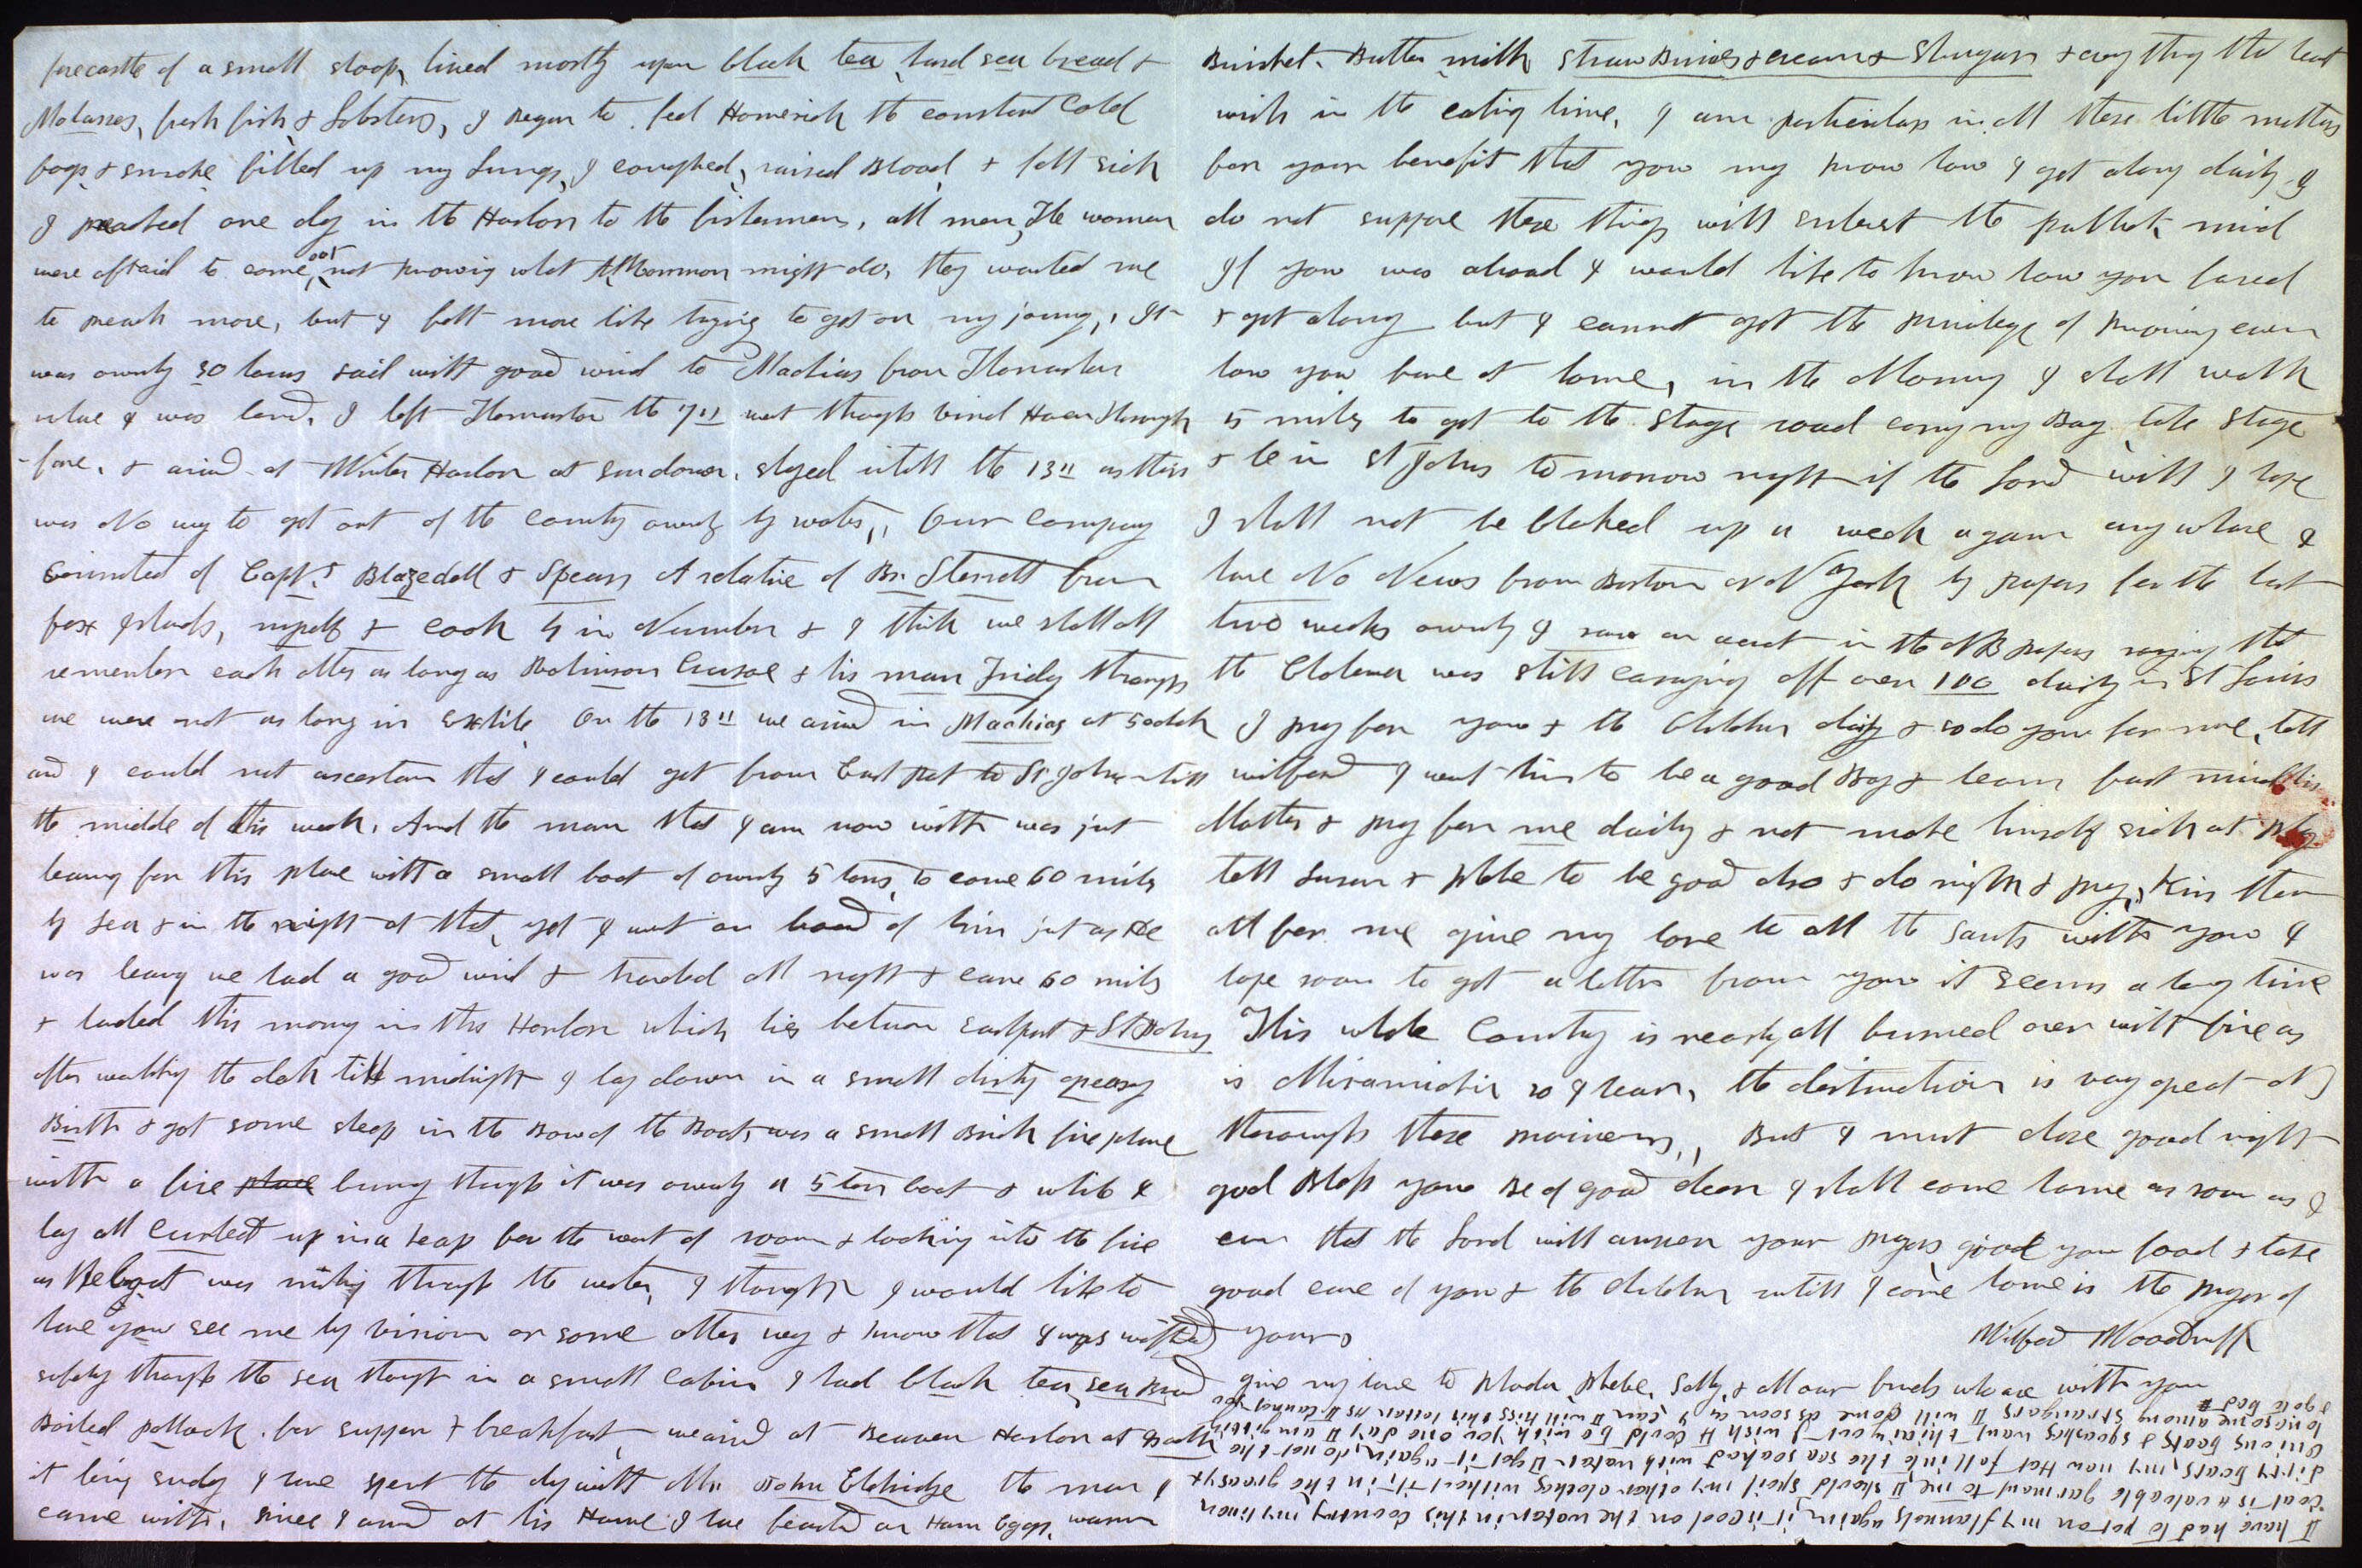 forecastle of a small sloop, lived mostly upon black tea, hard sea bread &
Molasses, fresh fish & Lobsters, I began to feel Homesick the constant Cold
fogs & smoke filled up my Lungs, I coughed, raised Blood, & felt sick
I preached one day in the Harbor to the fishermen, all men, the women
were affraid to come out, not knowing what A Mormon might do, they wanted me
to preach more, but I felt more like trying to get on my journey, It
was ownly 30 hours sail with good wind to Machias from Thomaston
whare I was bound, I left Thomaston the 7th went through
-fare, & arived at Winter Harbor at sundown, stayed untill the 13th as thare
was No way to get out of the country ownly by water, Our Company
Consisted of Capts Blazedell & Spears A relative of Br Sterrett from
fox Islands, myself & cook 4 in Number & I think we shall all
remember each other as long as Robinson Crusoe & his man Friday though
we were not as long in exhile On the 13th we arived in Machias at 5 oclok
and I could not ascertain that I could get from East port to St Johns till
the middle of this week. And the man that I am now with was just
leaving for this place with a small boat of ownly 5 tons, to come 60 miles
by sea & in the night at that, yet I went on board of him just as He
was leaving we had a good wind & travled all night & came 60 miles
& landed this morning in this Harbor which lies between Eastport & St Johns
after walking the deck till midnight I lay down in a small dirty greasy
Birth & got some sleep in the Bow of the Boat, was a small Brick fire place
with a fire place burning though it was ownly a 5 ton boat & while I
lay all Curled up in a heap for the want of room & looking into the fire
as the boat was making through the water, I thought I would like to
have you see me by vision or some other way & know that I was wafted
safely through the sea though in a small Cabin I had black tea, sea Bread
Boiled pollock for supper & breakfast, we arived at Beaver Harbor at
it being sunday I have spent the day with Mr John Eldridge the man I
came with, since I arived at his Home I have feasted on Ham Eggs, warm
Butter milk Straw Buries & cream & Shugar & evry thing that heart
wish in the eating line, I am particular in all these little matters
for your benefit that you may know how I get along daily I
do not suppose these things will interest the publick mind
If you was abroad I would like to know how you fared
& got along but I cannot get the privilege of knowing even
how you fare at home, in the Morning I shall walk
5 miles to get to the Stage road carry my Bag take Stage
& be in St Johns tomorrow night if the Lord will I hope
I shall not be blocked up a week again any whare I
have No News from Boston or N York by papers for the last
two weeks ownly I saw an acout in the NB papers saying that
the Cholera was still carrying off over 100 daily in St Louis
I pray for you & the Children daily & so do you for me, tell
wilford I want him to be a good Boy & learn fast mind his
Mother & pray for me daily & not make himself sick at play
tell Susan & phebe to be good also & do right & pray, Kiss them
all for me give my love to all the Saints with you I
hope soon to get a letter from you it seems a long time
This whole Country is nearly all burned over with fire as
is Miramichi so I learn, the destruction is vary great all
through these provinces, But I must close good night
god Bless you Be of good cheer I shall come home as soon as I
can that the Lord will answer your prayers give you food & take
good care of you & the children untill I come home is the prayer of
yours
Wilford Woodruff
give my love to Rhoda phebe, Sally, & all our friends who are with you
I have had to put on my flannels again, it is cool on the water in this Country my linnen
coat is a valuable garment to me, I should spoil my other clothes without it, in the greasy &
dirty boats, my now Hat fell into the sea soaked with water I got it again, do not the
onions beets & squashes want thining out I wish I could be with you one day I am getting
lonesome among strangers I will come as soon as I can I will kiss this letter as I cannot you
& go to bed